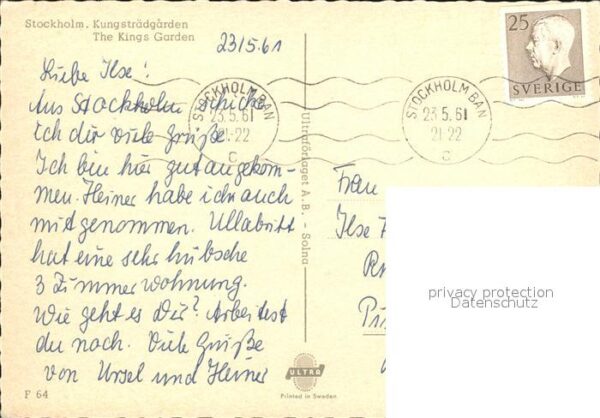 Stockholm. Kungsträdgården
The Kings Garden
23/5.61
Liebe Ilse!
Aus Stockholm schicke
ich dir viele Grüße
Ich bin hier gut angekom-
men. Heiner habe ich auch
mitgenommen. Ullabritt
hat eine sehr hübsche
3 Zimmerwohnung.
Wie geht es Dir? Arbeitest
du noch. Viele Grüße
von Ursel und Heiner
F 64
Ultraförlaget A.B. - Solna
ULTRA
Printed in Sweden
25
SVERIGE
STOCKHOLM BAN
23.5.61
21-22
C
STOCKHOLM BAN
23.5.61
21-22
C
Frau
Ilse
privacy protection
Datenschutz